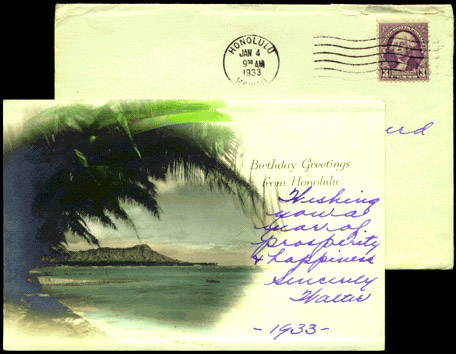 HONOLULU
JAN 4
9 30 AM
1933
HAWAII
3 3
erd
Birthday Greetings
from Honolulu
Wishing
you a
year of
prosperity
& happiness
Sincerely
Walter
-1933-